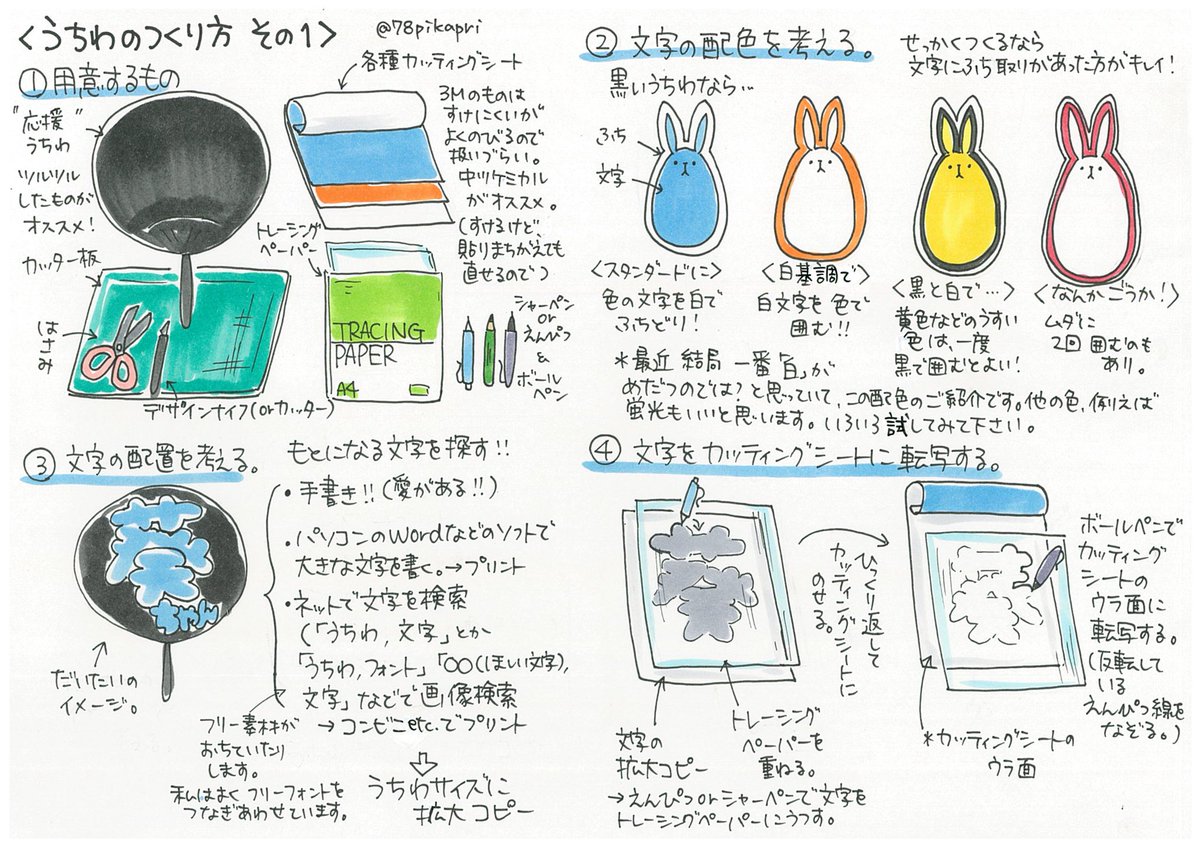 <うちわのつくり方 その1>
@78pikapri
①用意するもの
"応援"
うちわ
ツルツル
したものが
オススメ!
各種カッティングシート
3Mのものは
すけにくいが
よくのびるので
扱いづらい。
中川ケミカル
がオススメ。
(すけるけど、
貼りまちがえても
直せるので)
カッター板
はさみ
デザインナイフ(orカッター)
トレーシング
ペーパー
TRACING
PAPER
A4
シャーペン
or
えんぴつ
&
ボール
ペン
②文字の配色を考える。
せっかくつくるなら
文字にふち取りがあった方がキレイ!
黒いうちわなら…
ふち
文字
<スタンダードに>
色の文字を白で
ふちどり!
<白基調で>
白文字を色で
囲む!!
<黒と白で…>
黄色などのうすい
色は、一度
黒で囲むとよい!
<なんかごうか!>
ムダに
2回囲むのも
あり。
*最近 結局 一番「白」が
めだつのでは?と思っていて、この配色のご紹介です。他の色、例えば
蛍光もいいと思います。いろいろ試してみて下さい。
③文字の配置を考える。
ちゃん
だいたいの
イメージ。
もとになる文字を探す!!
・手書き!!(愛がある!!)
・パソコンのWordなどのソフトで
大きな文字を書く。→プリント
・ネットで文字を検索
(「うちわ,文字」とか
「うちわ,フォント」「○○(ほしい文字),
文字」などで画像検索
→コンビニetc.でプリント
フリー素材が
おちていたり
します。
私はよくフリーフォントを
つなぎあわせています。
うちわサイズに
拡大コピー
④文字をカッティングシートに転写する。
文字の
拡大コピー
トレーシング
ペーパーを
重ねる。
→えんぴつorシャーペンで文字を
トレーシングペーパーにうつす。
ひっくり返して
カッティングシートに
のせる。
ボールペンで
カッティング
シートの
ウラ面に
転写する。
(反転して
いる
えんぴつ線を
なぞる。)
*カッティングシートの
ウラ面